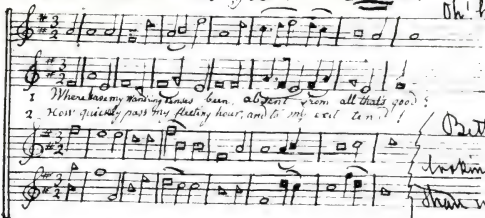 Oh!
1 Where have my wand'ring senses been, absent from all that's good?
2 How quickly pass my fleeting hours, and to my exit tend!